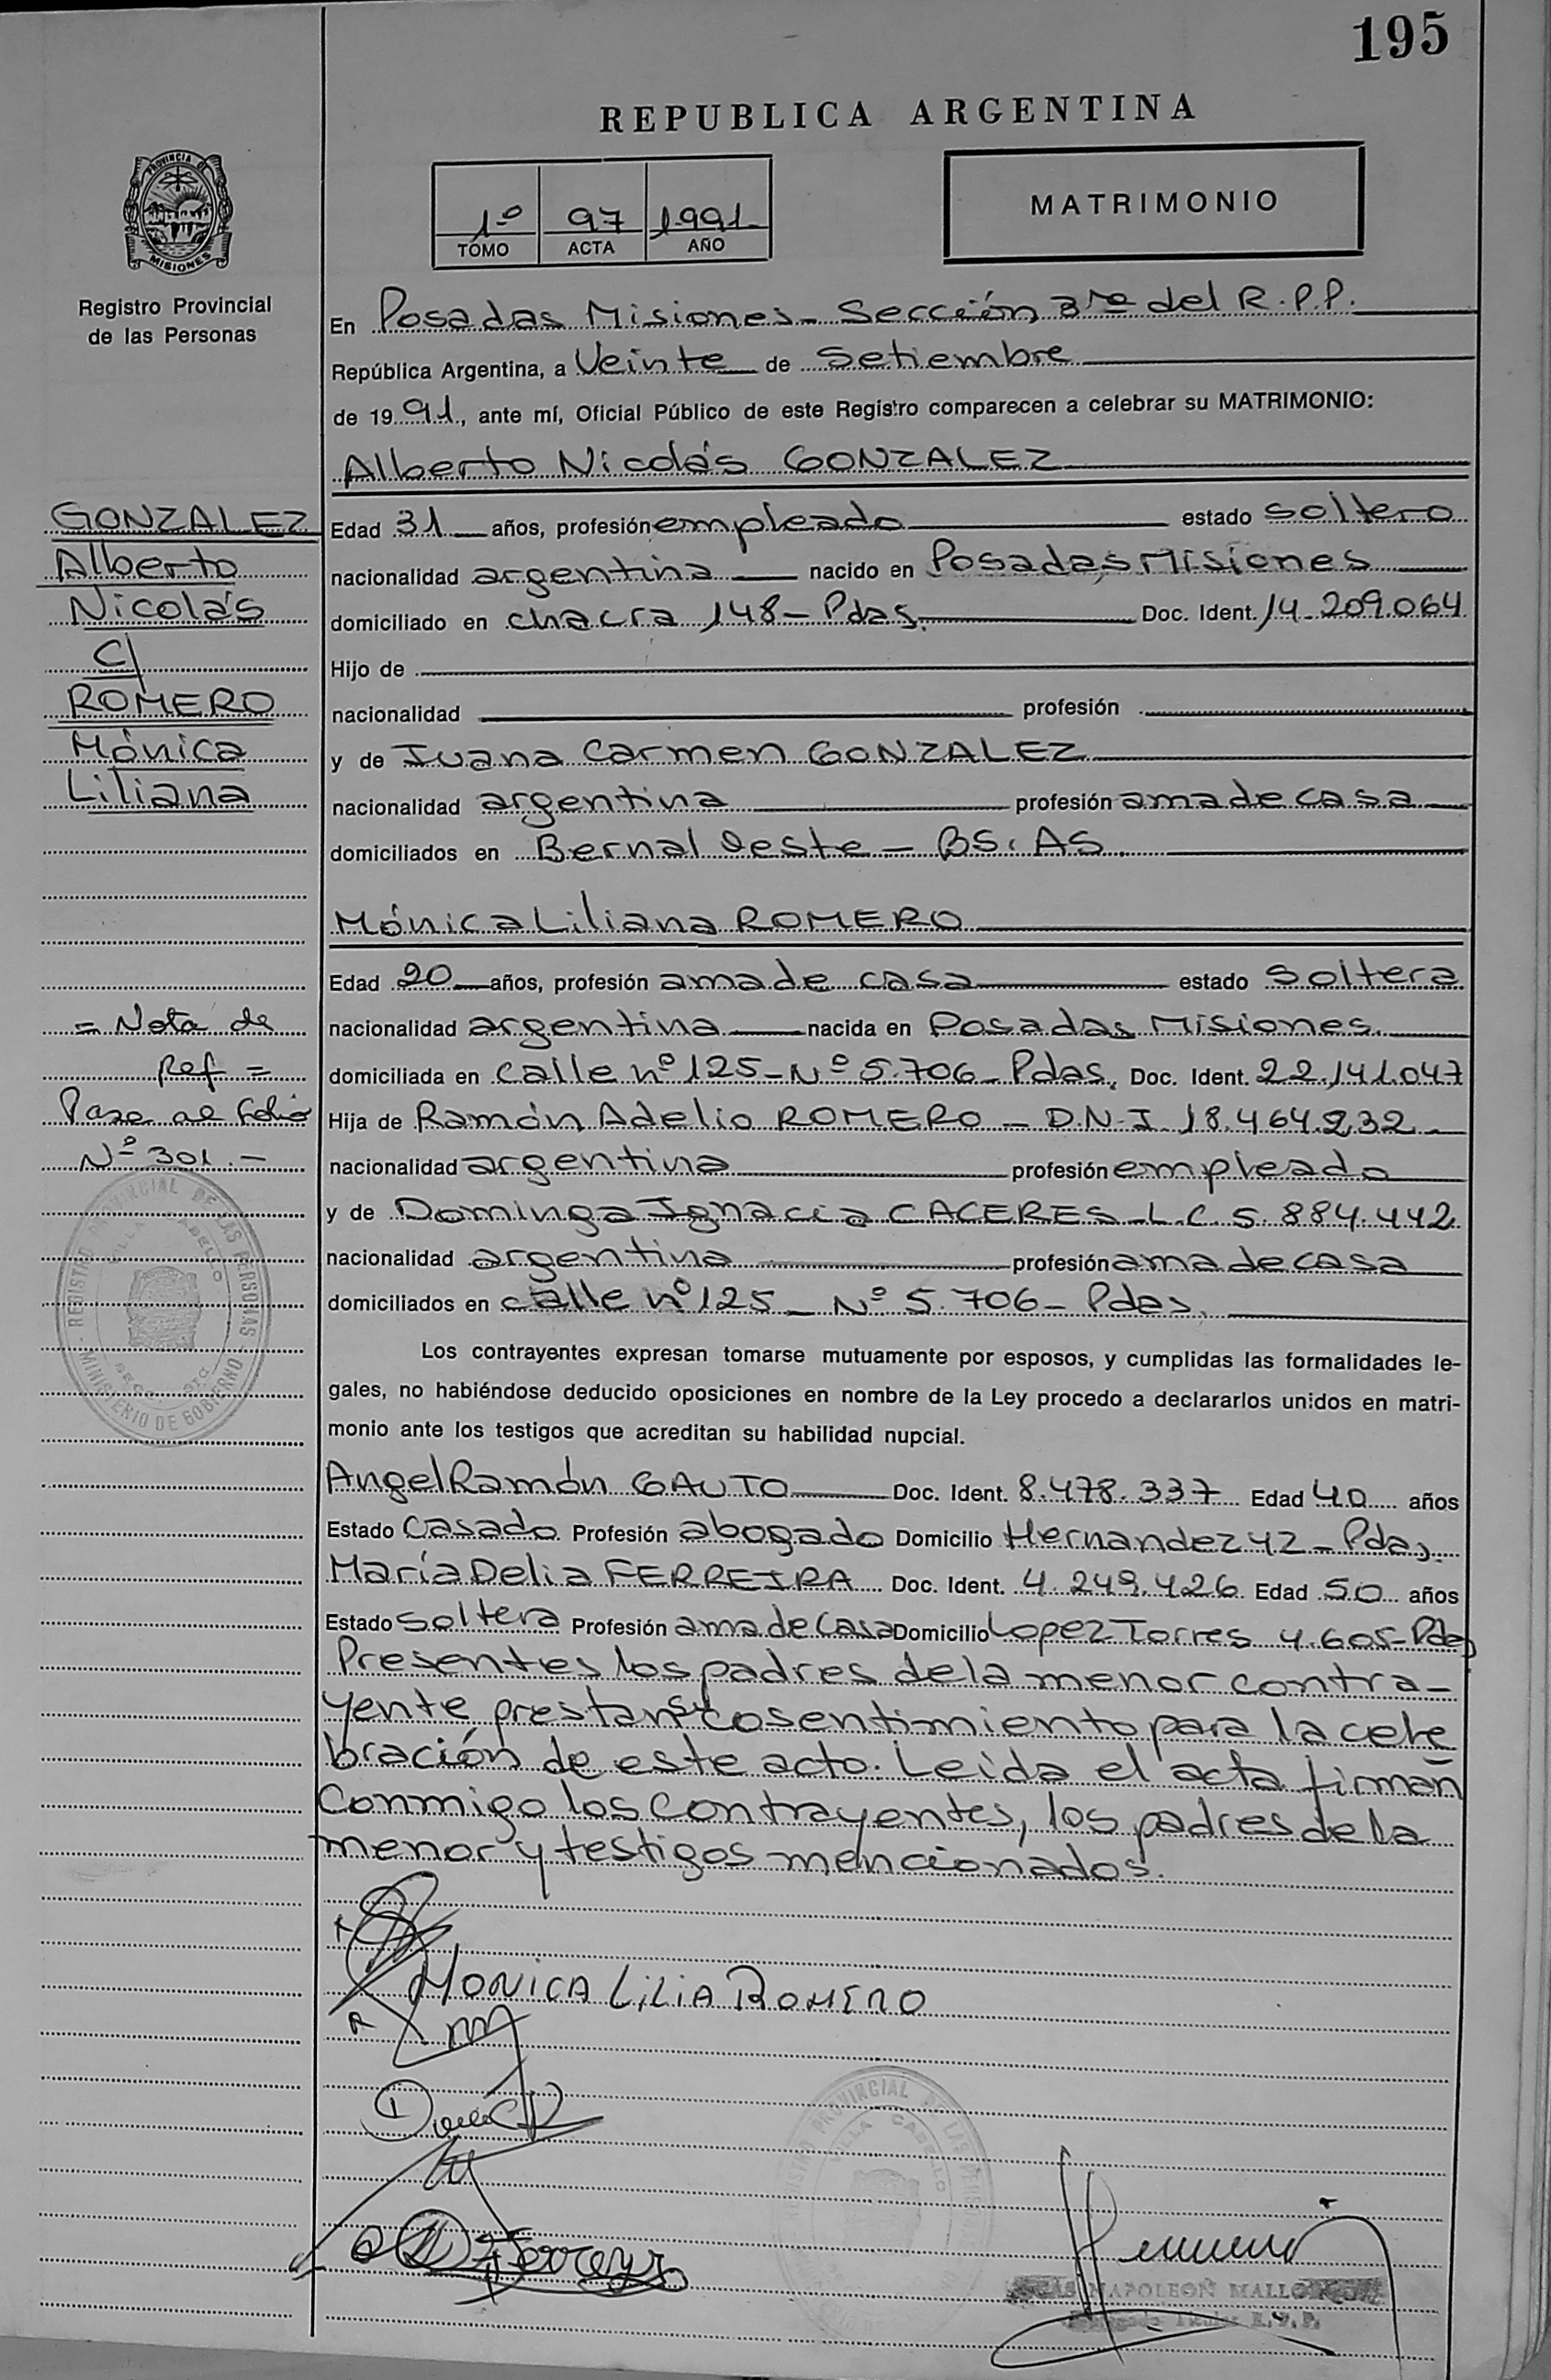 195
REPUBLICA ARGENTINA
PROVINCIA DE
MISIONES
Registro Provincial
de las Personas
1º 97 1991
TOMO ACTA AÑO
MATRIMONIO
En Posadas Misiones - Sección 3ra del R.P.P.
República Argentina, a Veinte de Setiembre
de 1991, ante mí, Oficial Público de este Registro comparecen a celebrar su MATRIMONIO:
Alberto Nicolás GONZALEZ
GONZALEZ
Alberto
Nicolás
C/
ROMERO
Mónica
Liliana
Edad 31 años, profesión empleado estado soltero
nacionalidad argentina nacido en Posadas, Misiones
domiciliado en chacra 148 - Pdas. Doc. Ident. 14.209.064
Hijo de
nacionalidad profesión
y de Juana Carmen GONZALEZ
nacionalidad argentina profesión ama de casa
domiciliados en Bernal Oeste - BS. AS.
Mónica Liliana ROMERO
Edad 20 años, profesión ama de casa estado soltera
nacionalidad argentina nacida en Posadas Misiones.
domiciliada en calle nº 125 - Nº 5.706 - Pdas. Doc. Ident. 22.141.047
Hija de Ramón Adelio ROMERO - D.N.I. 18.464.232
nacionalidad argentina profesión empleado
y de Dominga Ignacia CACERES - L.C. 5.884.442
nacionalidad argentina profesión ama de casa
domiciliados en calle nº 125 - Nº 5.706 - Pdas.
= Nota de
Ref =
Pase al folio
Nº 301.-
REGISTRO PROVINCIAL DE LAS PERSONAS
VILLA CABELLO
MINISTERIO DE GOBIERNO
Los contrayentes expresan tomarse mutuamente por esposos, y cumplidas las formalidades le-
gales, no habiéndose deducido oposiciones en nombre de la Ley procedo a declararlos unidos en matri-
monio ante los testigos que acreditan su habilidad nupcial.
Angel Ramón GAUTO Doc. Ident. 8.478.337 Edad 40 años
Estado casado Profesión abogado Domicilio Hernandez 42 - Pdas.
María Delia FERREIRA Doc. Ident. 4.249.426 Edad 50 años
Estado soltera Profesión ama de casa Domicilio Lopez Torres 4.605 - Pdas
Presentes los padres de la menor contra-
yente, prestan su cosentimiento para la cele
bración de este acto. Leida el acta firman
conmigo los contrayentes, los padres de la
menor y testigos mencionados.
MONICA LILIA ROMERO
REGISTRO PROVINCIAL DE LAS PERSONAS
VILLA CABELLO
NAPOLEON